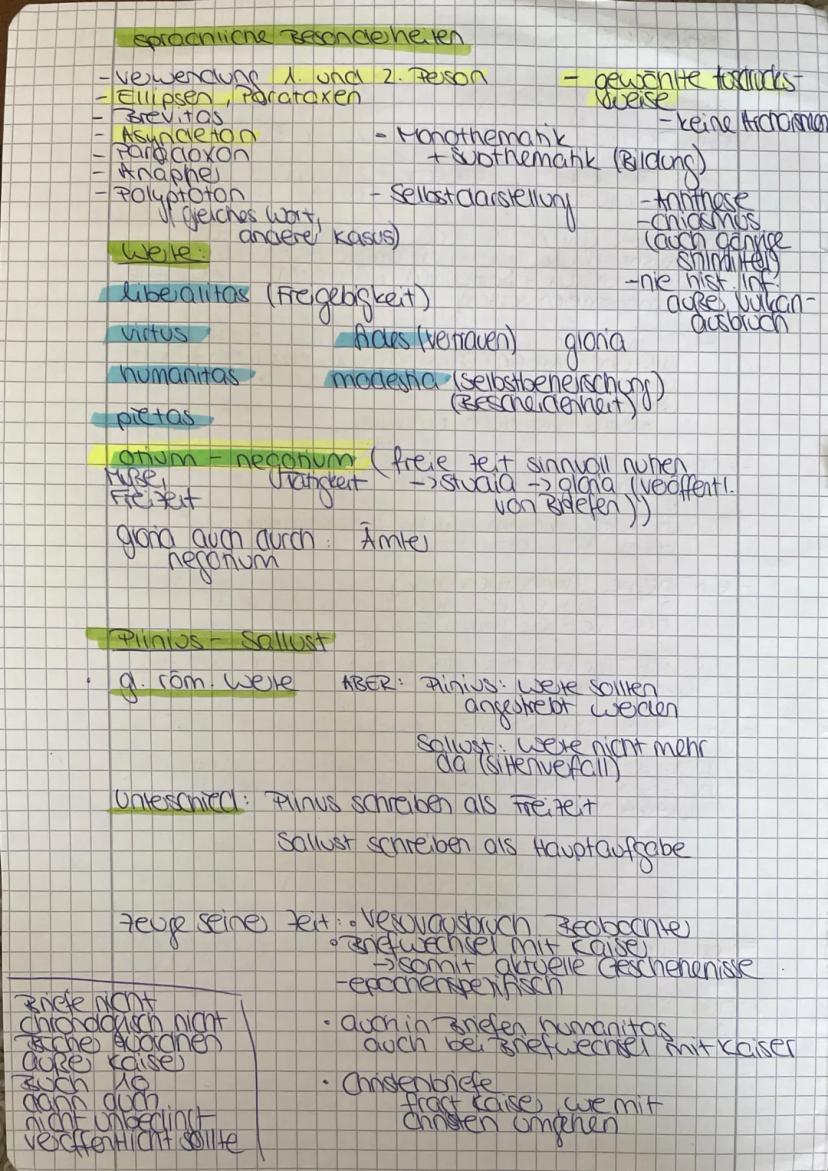 sprachliche Besonderheiten
- Verwendung 1. und 2. Person
- Ellipsen, Parataxen
- Brevitas
- Asyndeton
- Paradoxon
- Anapher
- Polyptoton
(gleiches Wort,
anderer Kasus)
- Monothematik
+ Subthematik (Bildung)
- Selbstdarstellung
- gewählte Ausdrucks-
weise
- keine Archaismen
- Antithese
- Chiasmus
(auch gängige
Stilmittel)
- nie hist. Inf.
außer Vulkan-
ausbruch
Werte:
liberalitas (Freigebigkeit)
virtus
fides (Vertrauen) gloria
humanitas
modestia (Selbstbeherrschung)
(Bescheidenheit)
pietas
otium - negotium (freie Zeit sinnvoll nutzen
Muße, Tätigkeit -> studia -> gloria (Veröffentl.
Freizeit von Briefen))
gloria auch durch: Ämter
negotium
Plinius - Sallust
g. röm. Werte ABER: Plinius: Werte sollten
angestrebt werden
Sallust: Werte nicht mehr
da (Sittenverfall)
Unterschied: Plinius schreiben als Freizeit
Sallust schreiben als Hauptaufgabe
Zeuge seiner Zeit: • Vesuvausbruch Beobachter
• Briefwechsel mit Kaiser
-> somit aktuelle Geschehenisse
- epochenspezifisch
• auch in Briefen humanitas
auch bei Briefwechsel mit Kaiser
• Christenbriefe
fragt Kaiser, wie mit
Christen umgehen
Briefe nicht
chronologisch nicht
außer Kaiser
Buch 10
dann auch
nicht unbedingt
veröffentlicht sollte